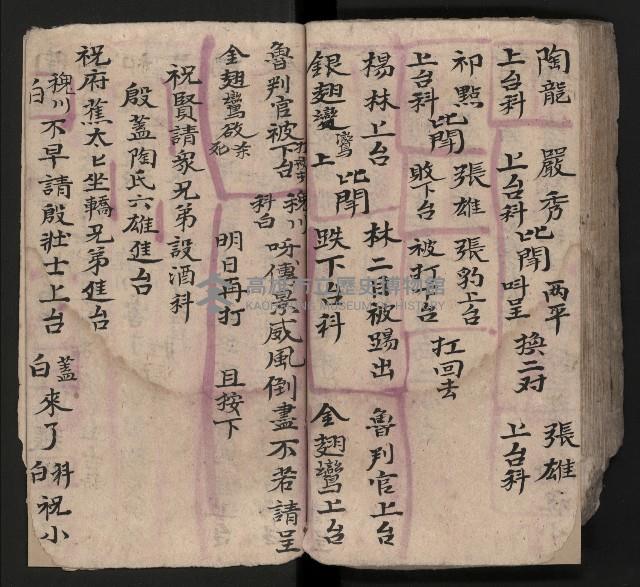 陶龍 嚴秀 两平 張雄
上台科 上台科 比鬧 叫呈 換二对 上台科
祁點 比鬧 張雄 張豹上台
上台科 敗下台 被打下台 扛回去
楊林上台 林二目被踢出 魯判官上台
銀翅鸞上 比鬧 跌下台科 金翅鸞上台
魯判官被下台 科白 呀傳景威風倒盡不若請呈
金翅鸞放 死 明日再打 且按下
祝賢請衆兄弟設酒科
殷蓋陶氏六雄進台
祝府蕉太匕坐轎兄弟進台
白 不早請殷壯士上台 蓋白 來了 科白 祝小
高雄市立歷史博物館
KAOHSIUNG MUSEUM OF HISTORY